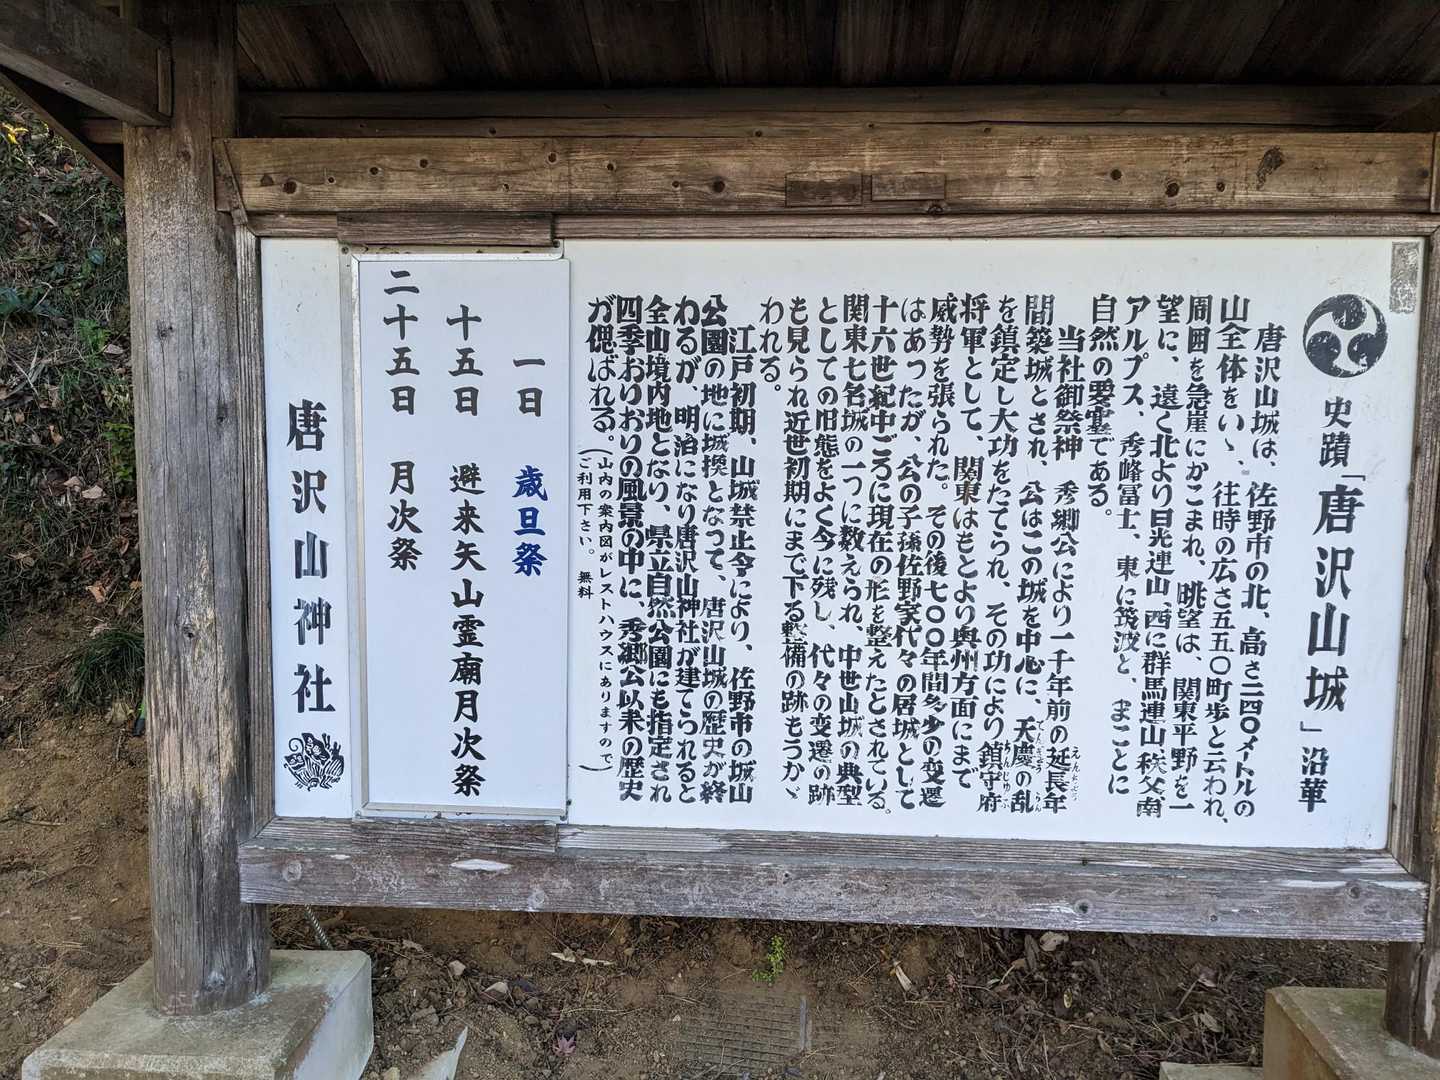 史蹟「唐沢山城」沿革
唐沢山城は、佐野市の北、高さ二四〇メートルの
山全体をいゝ、往時の広さ五五〇町歩と云われ、
周囲を急崖にかこまれ、眺望は、関東平野を一
望に、遠く北より日光連山、西に群馬連山、秩父南
アルプス、秀峰冨士、東に筑波と、まことに
自然の要塞である。
当社御祭神 秀郷公により一千年前の延長年
えんちょう
間築城とされ、公はこの城を中心に、天慶の乱
てんぎょう らん
を鎮定し大功をたてられ、その功により鎮守府
ちんじゅふ
将軍として、関東はもとより奥州方面にまで
威勢を張られた。その後七〇〇年間多少の変遷
はあったが、公の子孫佐野家代々の居城として
十六世紀中ごろに現在の形を整えたとされている。
関東七名城の一つに数えられ、中世山城の典型
としての旧態をよく今に残し、代々の変遷の跡
も見られ近世初期にまで下る整備の跡もうかゞ
われる。
江戸初期、山城禁止令により、佐野市の城山
公園の地に城換となって、唐沢山城の歴史が終
わるが、明治になり唐沢山神社が建てられると
全山境内地となり、県立自然公園にも指定され
四季おりおりの風景の中に、秀郷公以来の歴史
が偲ばれる。
(山内の案内図がレストハウスにありますので
ご利用下さい。 無料)
一日 歳旦祭
十五日 避来矢山霊廟月次祭
二十五日 月次祭
唐沢山神社